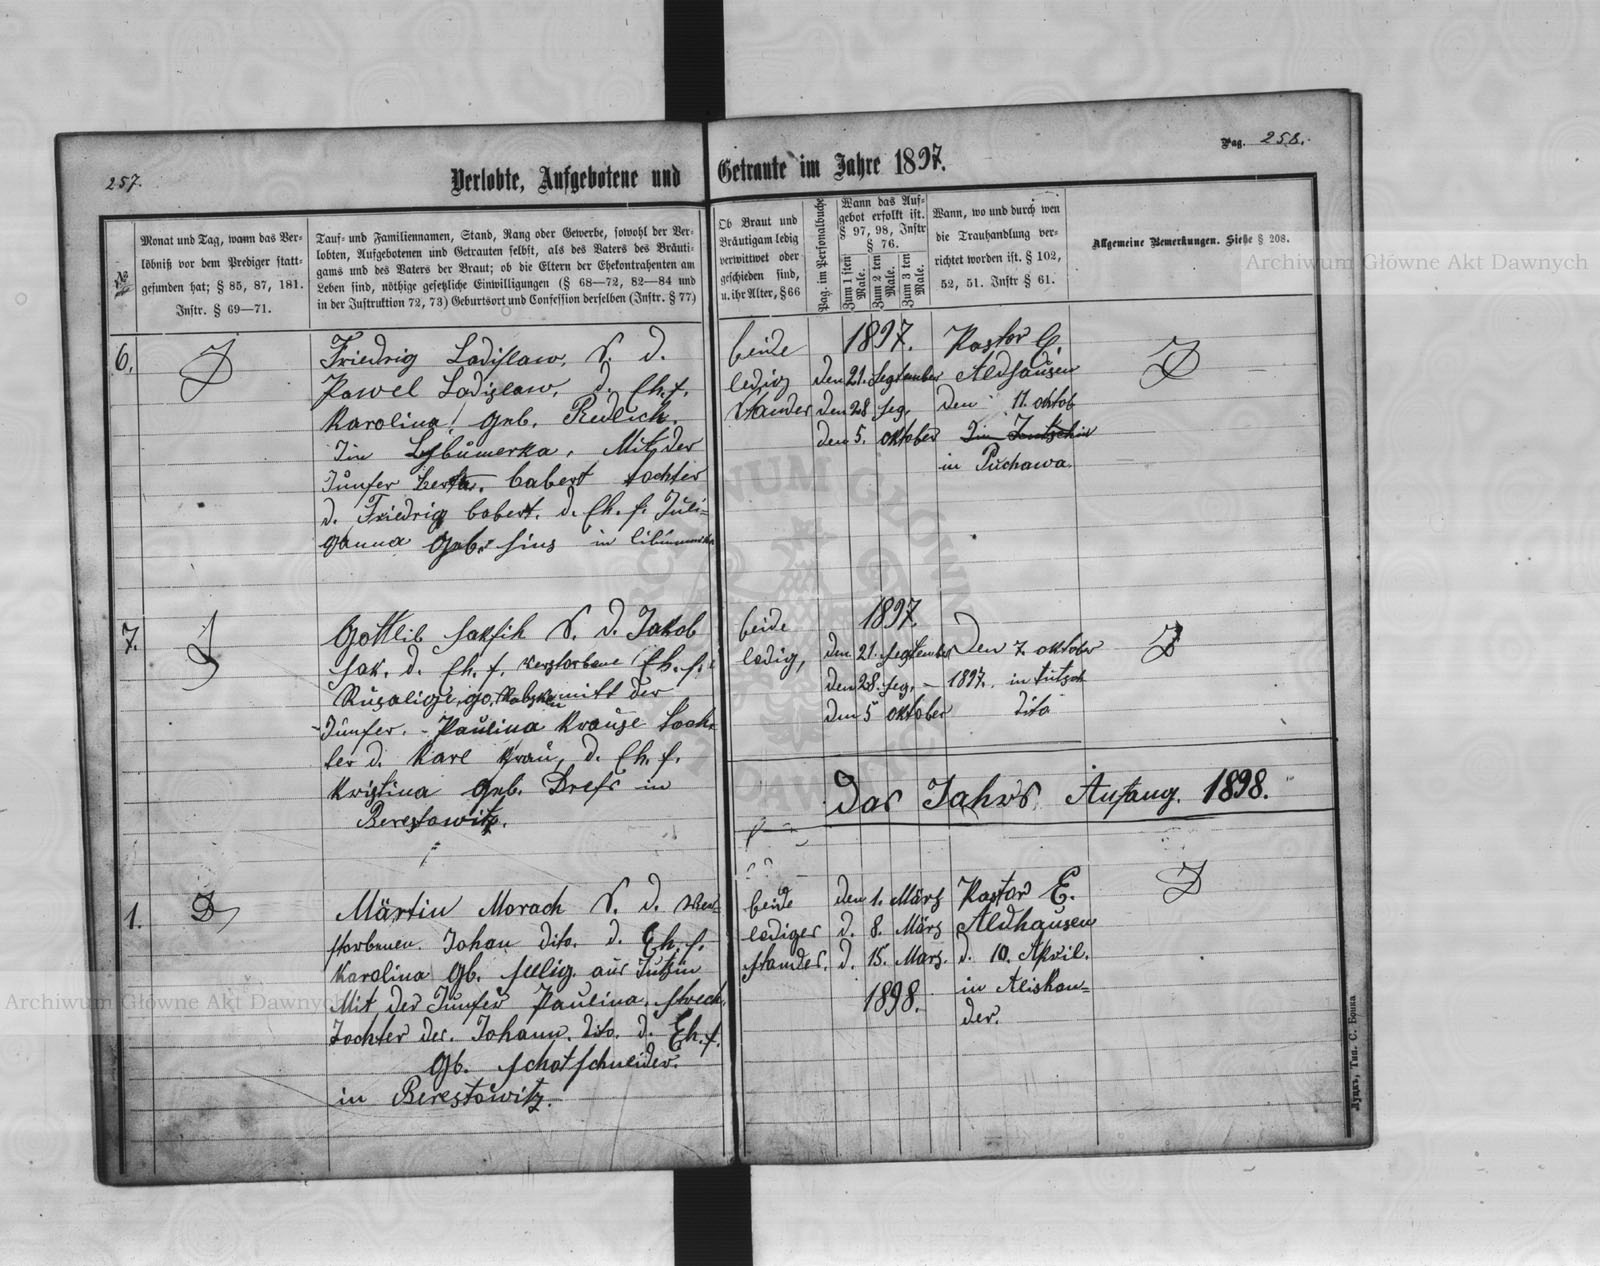 257.
Pag. 258.
Verlobte, Aufgebotene und Getraute im Jahre 1897.
№
Monat und Tag, wann das Ver-
löbniß vor dem Prediger statt-
gefunden hat; § 85, 87, 181.
Instr. § 69—71.
Tauf- und Familiennamen, Stand, Rang oder Gewerbe, sowohl der Ver-
lobten, Aufgebotenen und Getrauten selbst, als des Vaters des Bräuti-
gams und des Vaters der Braut; ob die Eltern der Ehekontrahenten am
Leben sind, nöthige gesetzliche Einwilligungen (§ 68—72, 82—84 und
in der Justruktion 72, 73) Geburtsort und Confession derselben (Instr. § 77)
Ob Braut und
Bräutigam ledig
verwittwet oder
geschieden sind,
u. ihr Alter, § 66
Pag. im Personalbuche
Wann das Auf-
gebot erfolkt ist.
§ 97, 98, Instr
§ 76.
Zum 1 sten Male.
Zum 2 ten Male.
Zum 3 ten Male.
Wann, wo und durch wen
die Trauhandlung ver-
richtet worden ist. § 102,
52, 51. Instr § 61.
Allgemeine Bemerkungen. Siehe § 208.
6.
Friedrig Ladislaw. S. d.
Pawel Ladislaw, d. Eh. f.
Karolina! geb. Redlich.
Mit der
Junfer Berta. tochter
d. Friedrig d. Eh. f. Juli=
ganna geb. in
beide
ledig
Standes
1897.
den 21. September
den 28 sep.
den 5. oktober
Pastor E.
Aldhausen
den 11. oktob
in Puchawa.
7.
Gottlib S. d. Jakob
d. Eh. f. verstorbene Eh. f.
mitt der
Junfer. Paulina Krause toch
ter d. Karl d. Eh. f.
Kristina geb. Drefs in
Berestowitz.
beide
ledig,
1897.
den 21. September
den 28. sep.
den 5 oktober
Den 7. oktober
1897. in
dito
Das Jahrs Anfang. 1898.
1.
Märtin Morach S. d. ver=
storbenen. Johan dito. d. Eh. f.
Karolina gb. aus
Mit der Junfer Paulina.
Tochter des. Johann. dito. d. Eh. f.
gb. schatschneider.
in Berestowitz.
beide
lediges
standes.
den 1. März
d. 8. März
d. 15. März.
1898.
Pastor E.
Aldhausen
d. 10. April.
in Aliskan=
der.
Луцкъ, Тип. С. Бонка
Archiwum Główne Akt Dawnych
Archiwum Główne Akt Dawnych
ARCHIWUM GŁÓWNE AKT DAWNYCH